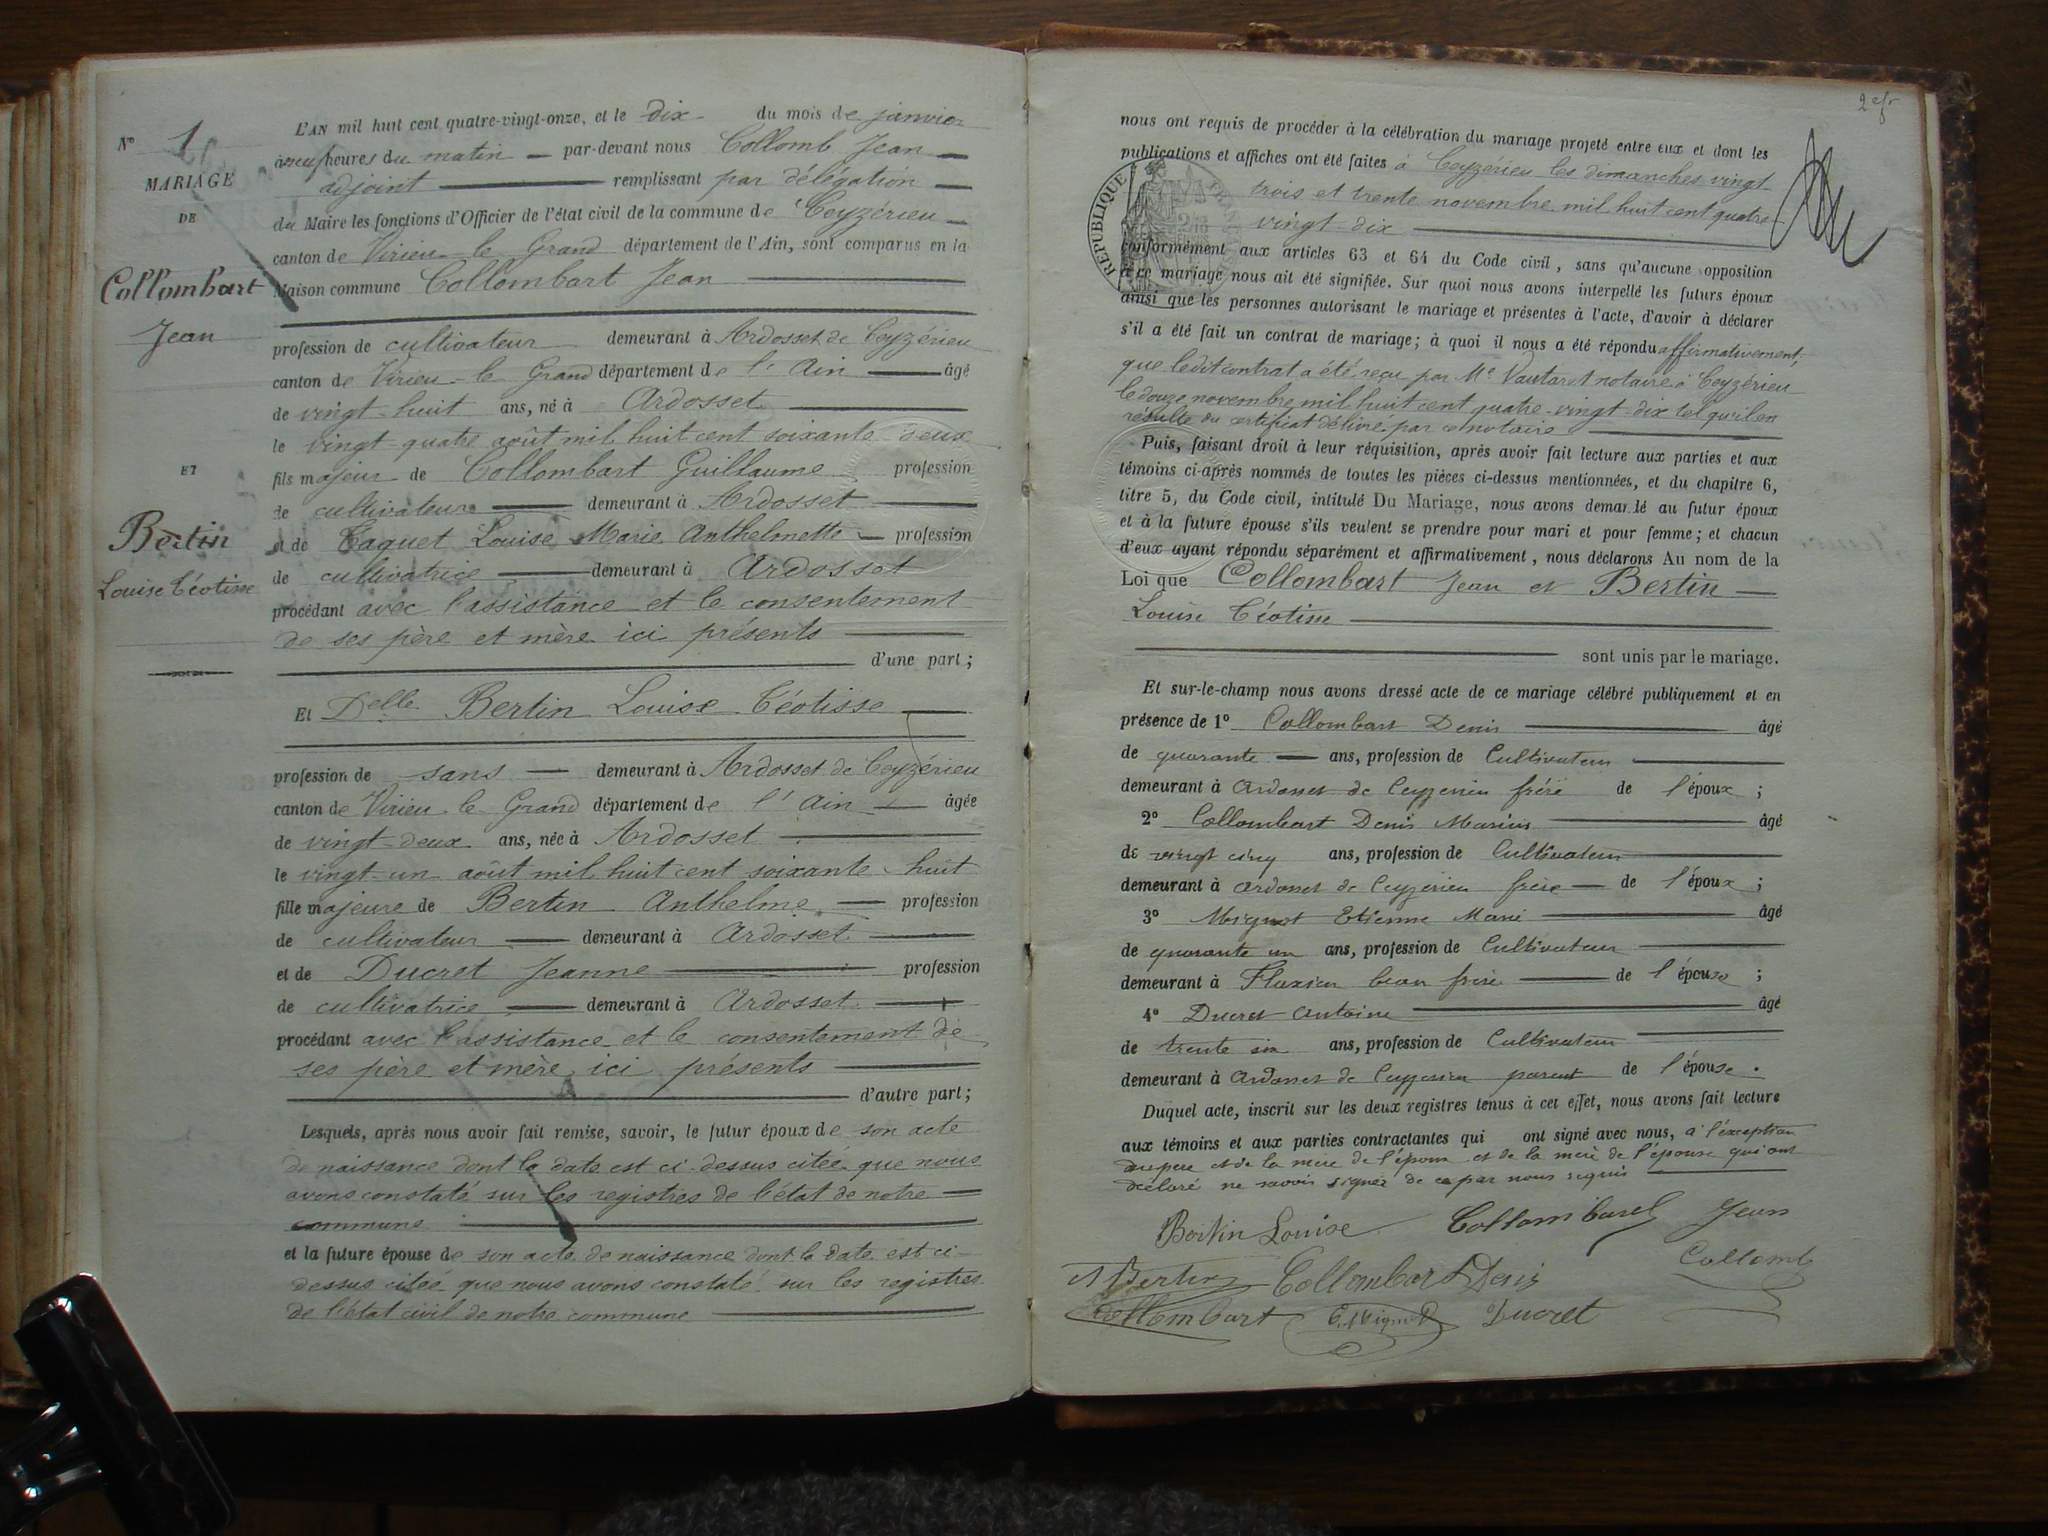 N° 1
MARIAGE
DE
Collombart
Jean
ET
Bertin
Louise Téotisse
L'AN mil huit cent quatre-vingt-onze, et le dix du mois de janvier
à neuf heures du matin par-devant nous Collomb Jean
adjoint remplissant par délégation
du Maire les fonctions d'Officier de l'état civil de la commune de Ceyzérieu
canton de Virieu le Grand département de l'Ain, sont comparus en la
Maison commune Collombart Jean
profession de cultivateur demeurant à Ardosset de Ceyzérieu
canton de Virieu-le Grand département de l'Ain âgé
de vingt-huit ans, né à Ardosset
le vingt-quatre août mil huit cent soixante-deux
fils majeur de Collombart Guillaume profession
de cultivateur demeurant à Ardosset
et de Taquet Louise Marie Anthelmette profession
de cultivatrice demeurant à Ardosset
procédant avec l'assistance et le consentement
de ses père et mère ici présents
d'une part;
Et Delle Bertin Louise Téotisse
profession de sans demeurant à Ardosset de Ceyzérieu
canton de Virieu le Grand département de l'Ain âgée
de vingt-deux ans, née à Ardosset
le vingt-un août mil huit cent soixante-huit
fille majeure de Bertin Anthelme profession
de cultivateur demeurant à Ardosset
et de Ducret Jeanne profession
de cultivatrice demeurant à Ardosset
procédant avec l'assistance et le consentement de
ses père et mère ici présents
d'autre part;
Lesquels, après nous avoir fait remise, savoir, le futur époux de son acte
de naissance dont la date est ci-dessus citée que nous
avons constaté sur les registres de l'état de notre
commune
et la future épouse de son acte de naissance dont la date est ci-
dessus citée que nous avons constaté sur les registres
de l'état civil de notre commune
nous ont requis de procéder à la célébration du mariage projeté entre eux et dont les
publications et affiches ont été faites à Ceyzérieu les dimanches vingt
trois et trente novembre mil huit cent quatre
vingt-dix
RÉPUBLIQUE
conformément aux articles 63 et 64 du Code civil, sans qu'aucune opposition
à ce mariage nous ait été signifiée. Sur quoi nous avons interpellé les futurs époux
ainsi que les personnes autorisant le mariage et présentes à l'acte, d'avoir à déclarer
s'il a été fait un contrat de mariage; à quoi il nous a été répondu affirmativement,
que ledit contrat a été reçu par Me Vautaret notaire à Ceyzérieu
le douze novembre mil huit cent quatre-vingt-dix tel qu'il en
résulte du certificat délivré par ce notaire
Puis, faisant droit à leur réquisition, après avoir fait lecture aux parties et aux
témoins ci-après nommés de toutes les pièces ci-dessus mentionnées, et du chapitre 6,
titre 5, du Code civil, intitulé Du Mariage, nous avons demandé au futur époux
et à la future épouse s'ils veulent se prendre pour mari et pour femme; et chacun
d'eux ayant répondu séparément et affirmativement, nous déclarons Au nom de la
Loi que Collombart Jean et Bertin
Louise Téotisse
sont unis par le mariage.
Et sur-le-champ nous avons dressé acte de ce mariage célébré publiquement et en
présence de 1° Collombart Denis âgé
de quarante ans, profession de Cultivateur
demeurant à Ardosset de Ceyzérieu frère de l'époux;
2° Collombart Denis Marius âgé
de vingt cinq ans, profession de Cultivateur
demeurant à Ardosset de Ceyzérieu frère de l'époux;
3° Mignot Etienne Marie âgé
de quarante un ans, profession de Cultivateur
demeurant à Flaxieu beau frère de l'épouse;
4° Ducret Antoine âgé
de trente six ans, profession de Cultivateur
demeurant à Ardosset de Ceyzérieu parent de l'épouse.
Duquel acte, inscrit sur les deux registres tenus à cet effet, nous avons fait lecture
aux témoins et aux parties contractantes qui ont signé avec nous, à l'exception
du père et de la mère de l'époux et de la mère de l'épouse qui ont
déclaré ne savoir signer de ce par nous requis
Bertin Louise Collombart Jean
A Bertin Collombart Denis Collomb
Collombart E. Mignot Ducret